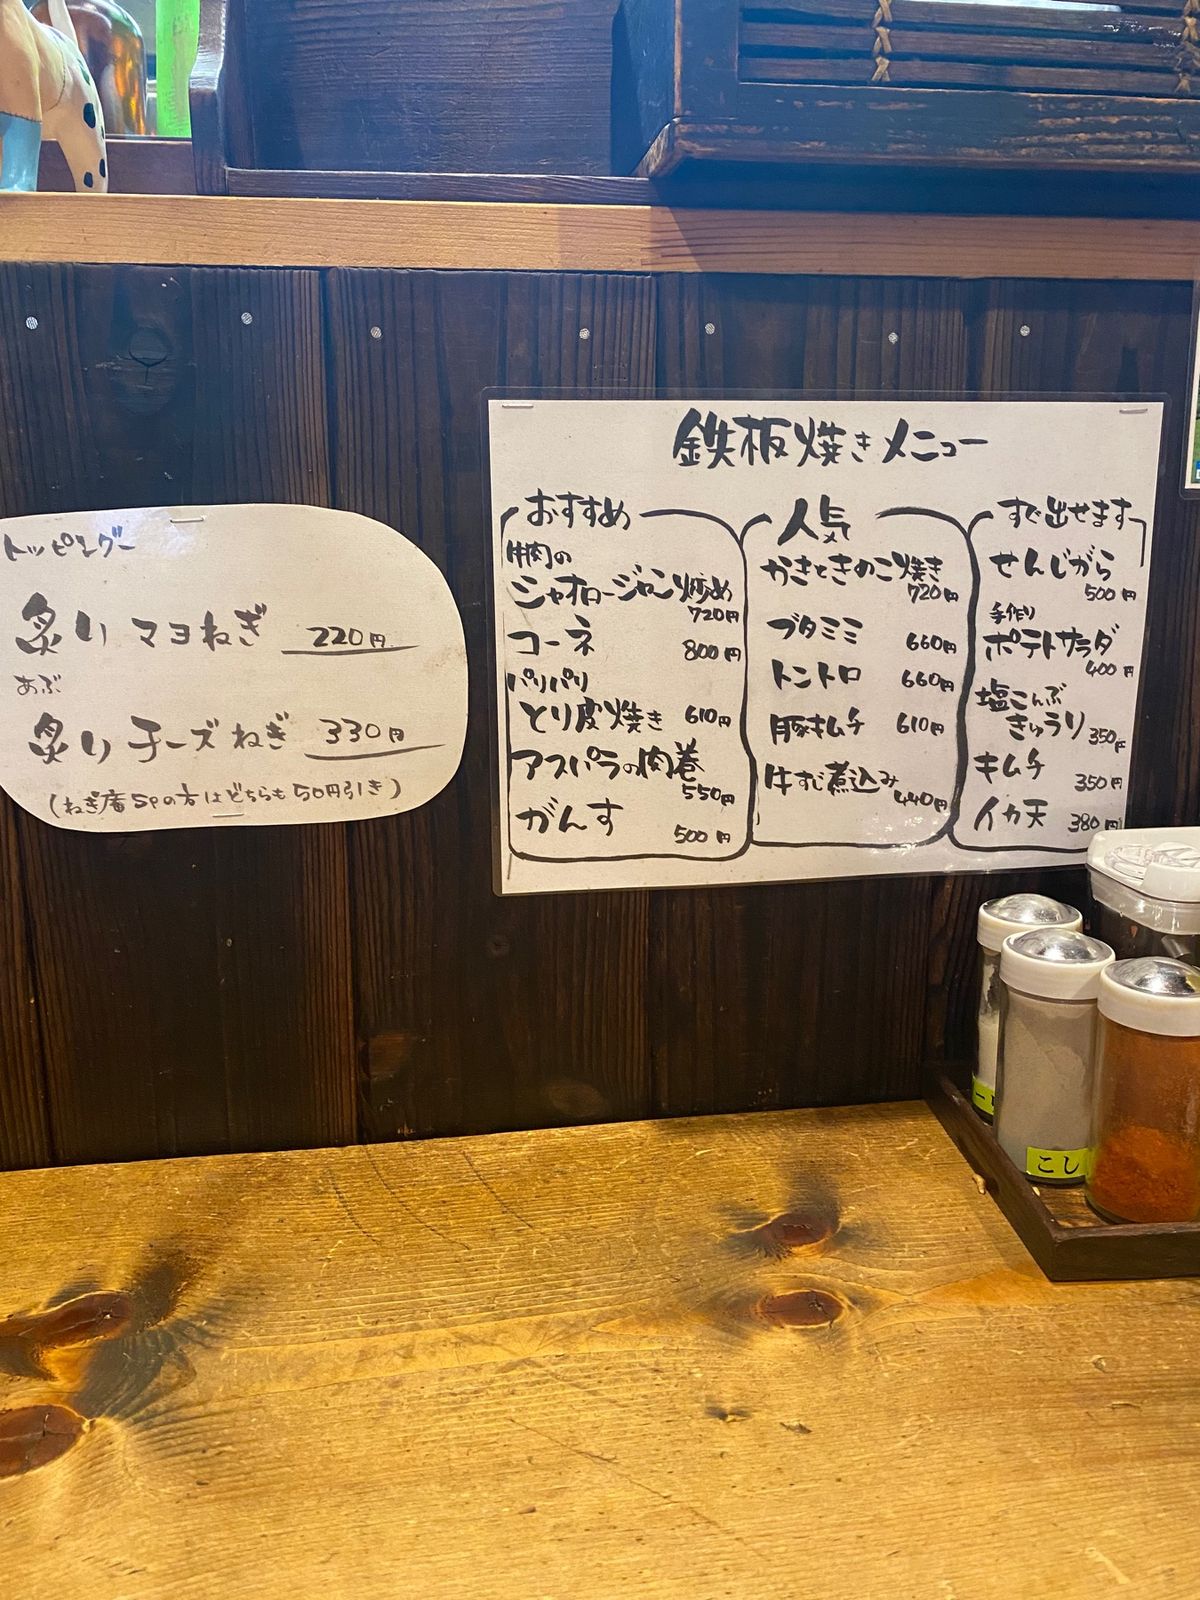 トッピング
炙り マヨねぎ 220円
あぶ
炙り チーズねぎ 330円
(ねぎ庵SPの方はどちらも50円引き)
鉄板焼きメニュー
おすすめ
牛肉の
シャオロージャン炒め
720円
コーネ 800円
パリパリ
とり皮焼き 610円
アスパラの肉巻
550円
がんす 500円
人気
かきときのこ焼き
720円
ブタミミ 660円
トントロ 660円
豚キムチ 610円
牛すじ煮込み
440円
すぐ出せます
せんじがら
500円
手作り
ポテトサラダ
400円
塩こんぶ
きゅうり 350円
キムチ 350円
イカ天 380円
こし